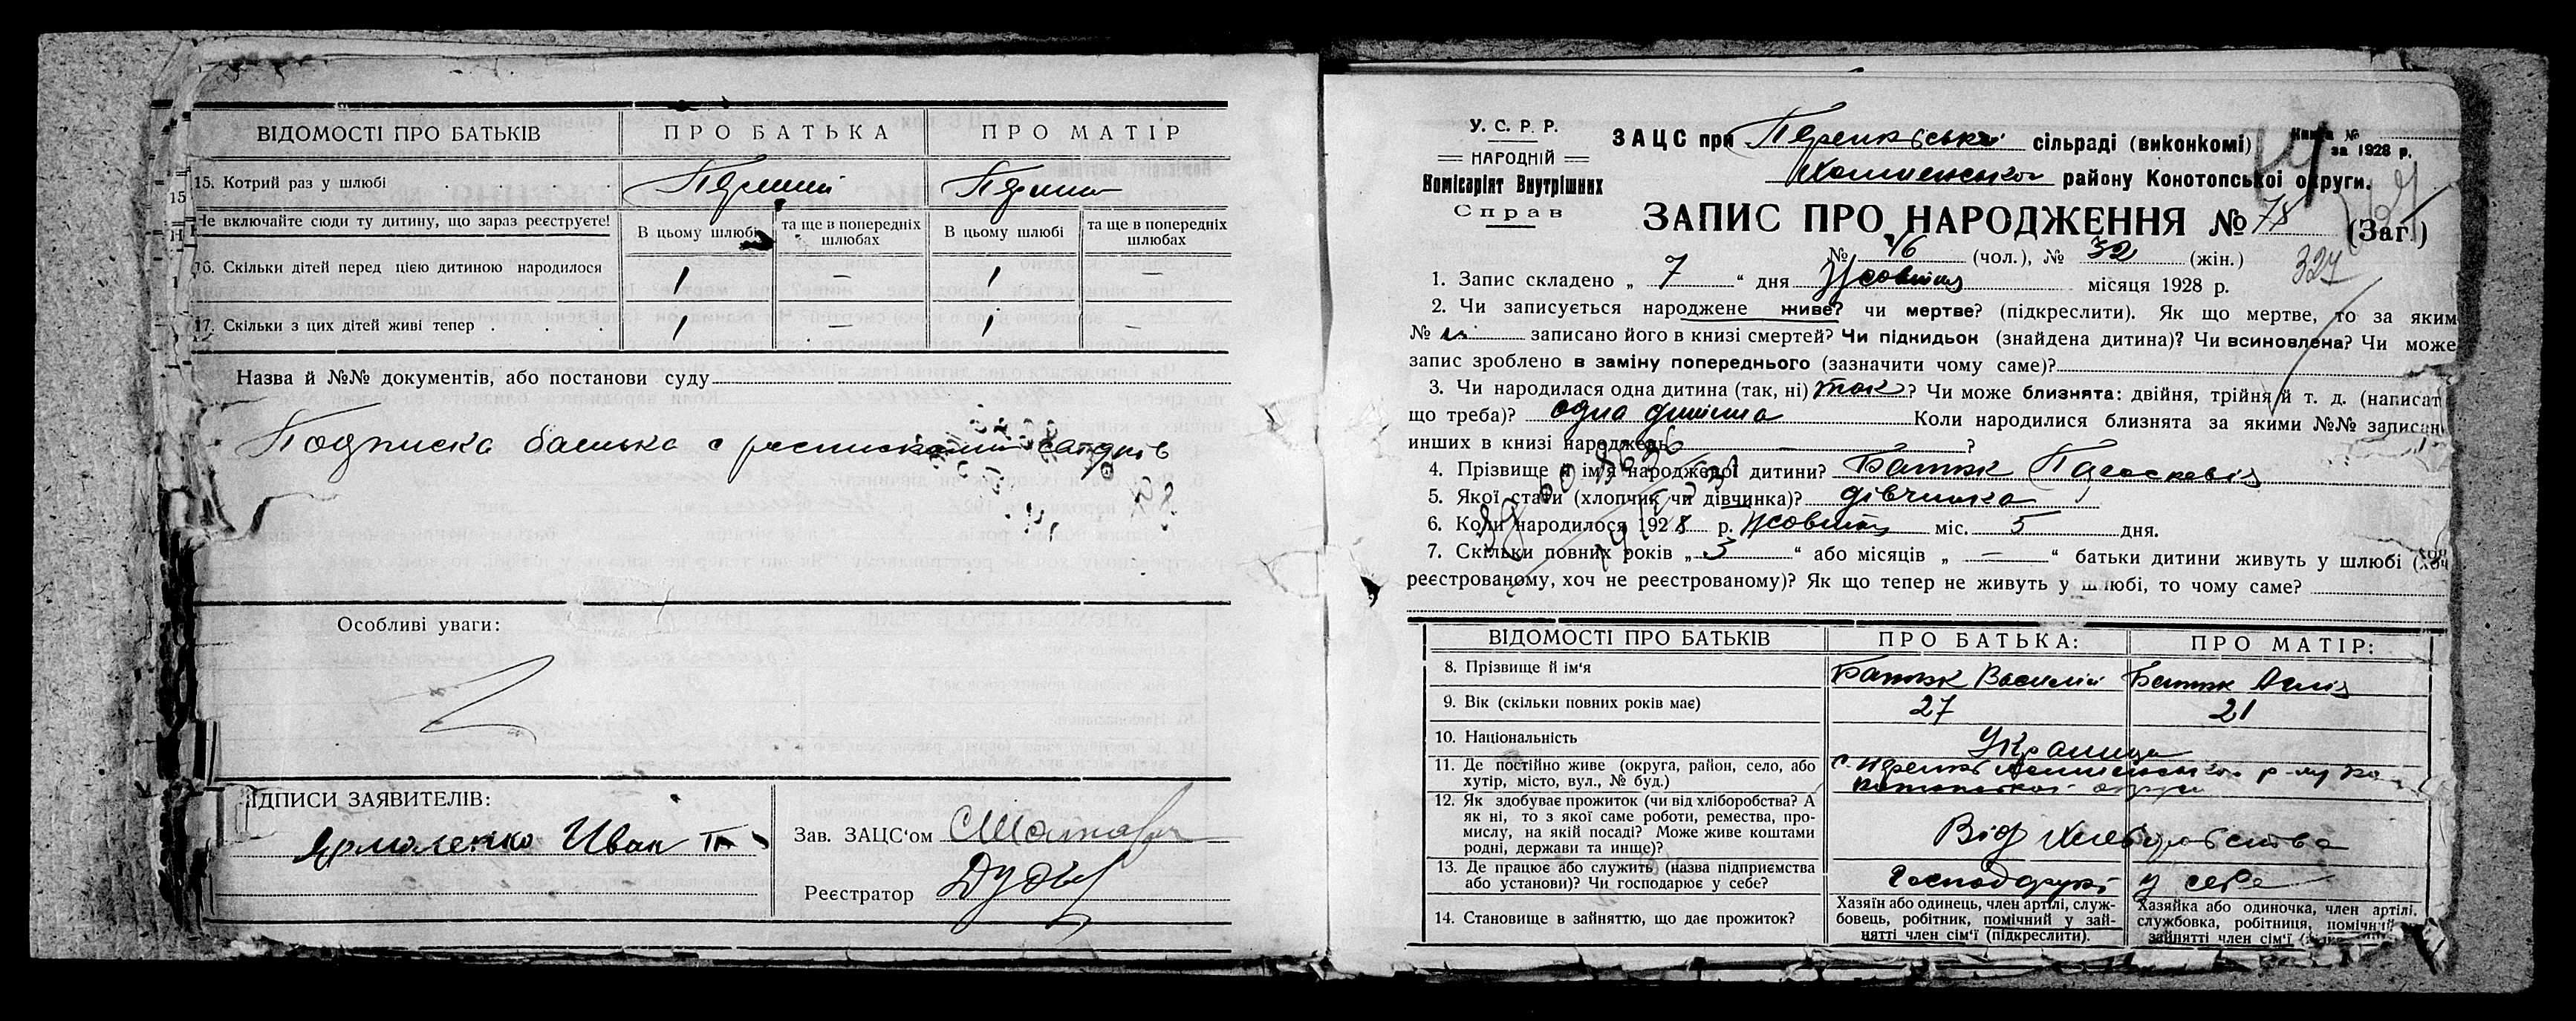 ВІДОМОСТІ ПРО БАТЬКІВ ПРО БАТЬКА ПРО МАТІР
15. Котрий раз у шлюбі
15
Не включайте сюди ту дитину, що зараз реєструєте! В цьому шлюбі та ще в попередніх шлюбах В цьому шлюбі та ще в попередніх шлюбах
16. Скільки дітей перед цією дитиною народилося 1 — 1 —
17. Скільки з цих дітей живі тепер 1 — 1 —
Назва й №№ документів, або постанови суду
Подписка батька с
Особливі уваги:
ПІДПИСИ ЗАЯВИТЕЛІВ:
Ярмоленко Иван
Зав. ЗАЦС'ом
Реєстратор
У. С. Р. Р.
НАРОДНІЙ
Комісаріят Внутрішних
Справ
ЗАЦС при сільраді (виконкомі)
Книга №
за 1928 р.
району Конотопської округи.
ЗАПИС ПРО НАРОДЖЕННЯ № 78 (Заг.)
№ 46 (чол.), № 32 (жін.)
327
1. Запис складено „ 7 “ дня Жовтня місяця 1928 р.
2. Чи записується народжене живе? чи мертве? (підкреслити). Як що мертве, то за яким
№ записано його в книзі смертей? Чи підкидьок (знайдена дитина)? Чи всиновлена? Чи може
запис зроблено в заміну попереднього (зазначити чому саме)?
3. Чи народилася одна дитина (так, ні) так? Чи може близнята: двійня, трійня й т. д. (написат
що треба)? одна дитина Коли народилися близнята за якими №№ записан
инших в книзі народжень ?
4. Прізвище й ім'я народженої дитини? Батюк Параскевія
5. Якої стати (хлопчик чи дівчинка)? дівчинка
6. Коли народилося 1928 р. Жовтня міс. 5 дня.
7. Скільки повних років „ 3 “ або місяців „ — “ батьки дитини живуть у шлюбі (хоч
реєстрованому, хоч не реєстрованому)? Як що тепер не живуть у шлюбі, то чому саме?
ВІДОМОСТІ ПРО БАТЬКІВ ПРО БАТЬКА: ПРО МАТІР:
8. Прізвище й ім'я Батюк Василій Батюк
9. Вік (скільки повних років має) 27 21
10. Національність Українці
11. Де постійно живе (округа, район, село, або
хутір, місто, вул., № буд.)
12. Як здобуває прожиток (чи від хліборобства? А
як ні, то з якої саме роботи, ремества, про-
мислу, на якій посаді? Може живе коштами
родні, держави та инще)?
Від хліборобства
13. Де працює або служить (назва підприємства
або установи)? Чи господарює у себе?
Господарюют у себе
14. Становище в зайняттю, що дає прожиток?
Хазяїн або одинець, член артілі, служ-
бовець, робітник, помічний у зай-
нятті член сім'ї (підкреслити).
Хазяйка або одиночка, член артілі,
службовка, робітниця, помічн
зайнятті член сім'ї